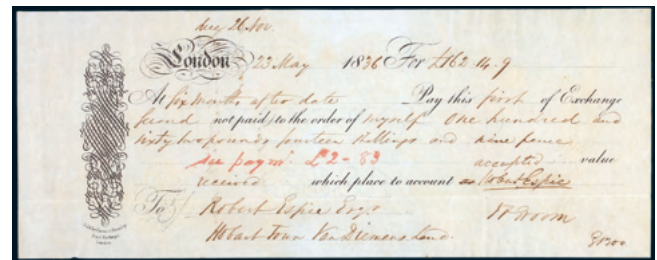 due 26 Nov.
London 23 May 1836 For £162-14.9
At Six Months after date Pay this first of Exchange
second not paid, to the order of myself One hundred and
sixty two pounds fourteen shillings and nine pence
accepted value
received which place to account Robert Espie
To Robert Espie Esqr
Hobart Town Van Diemens Land.